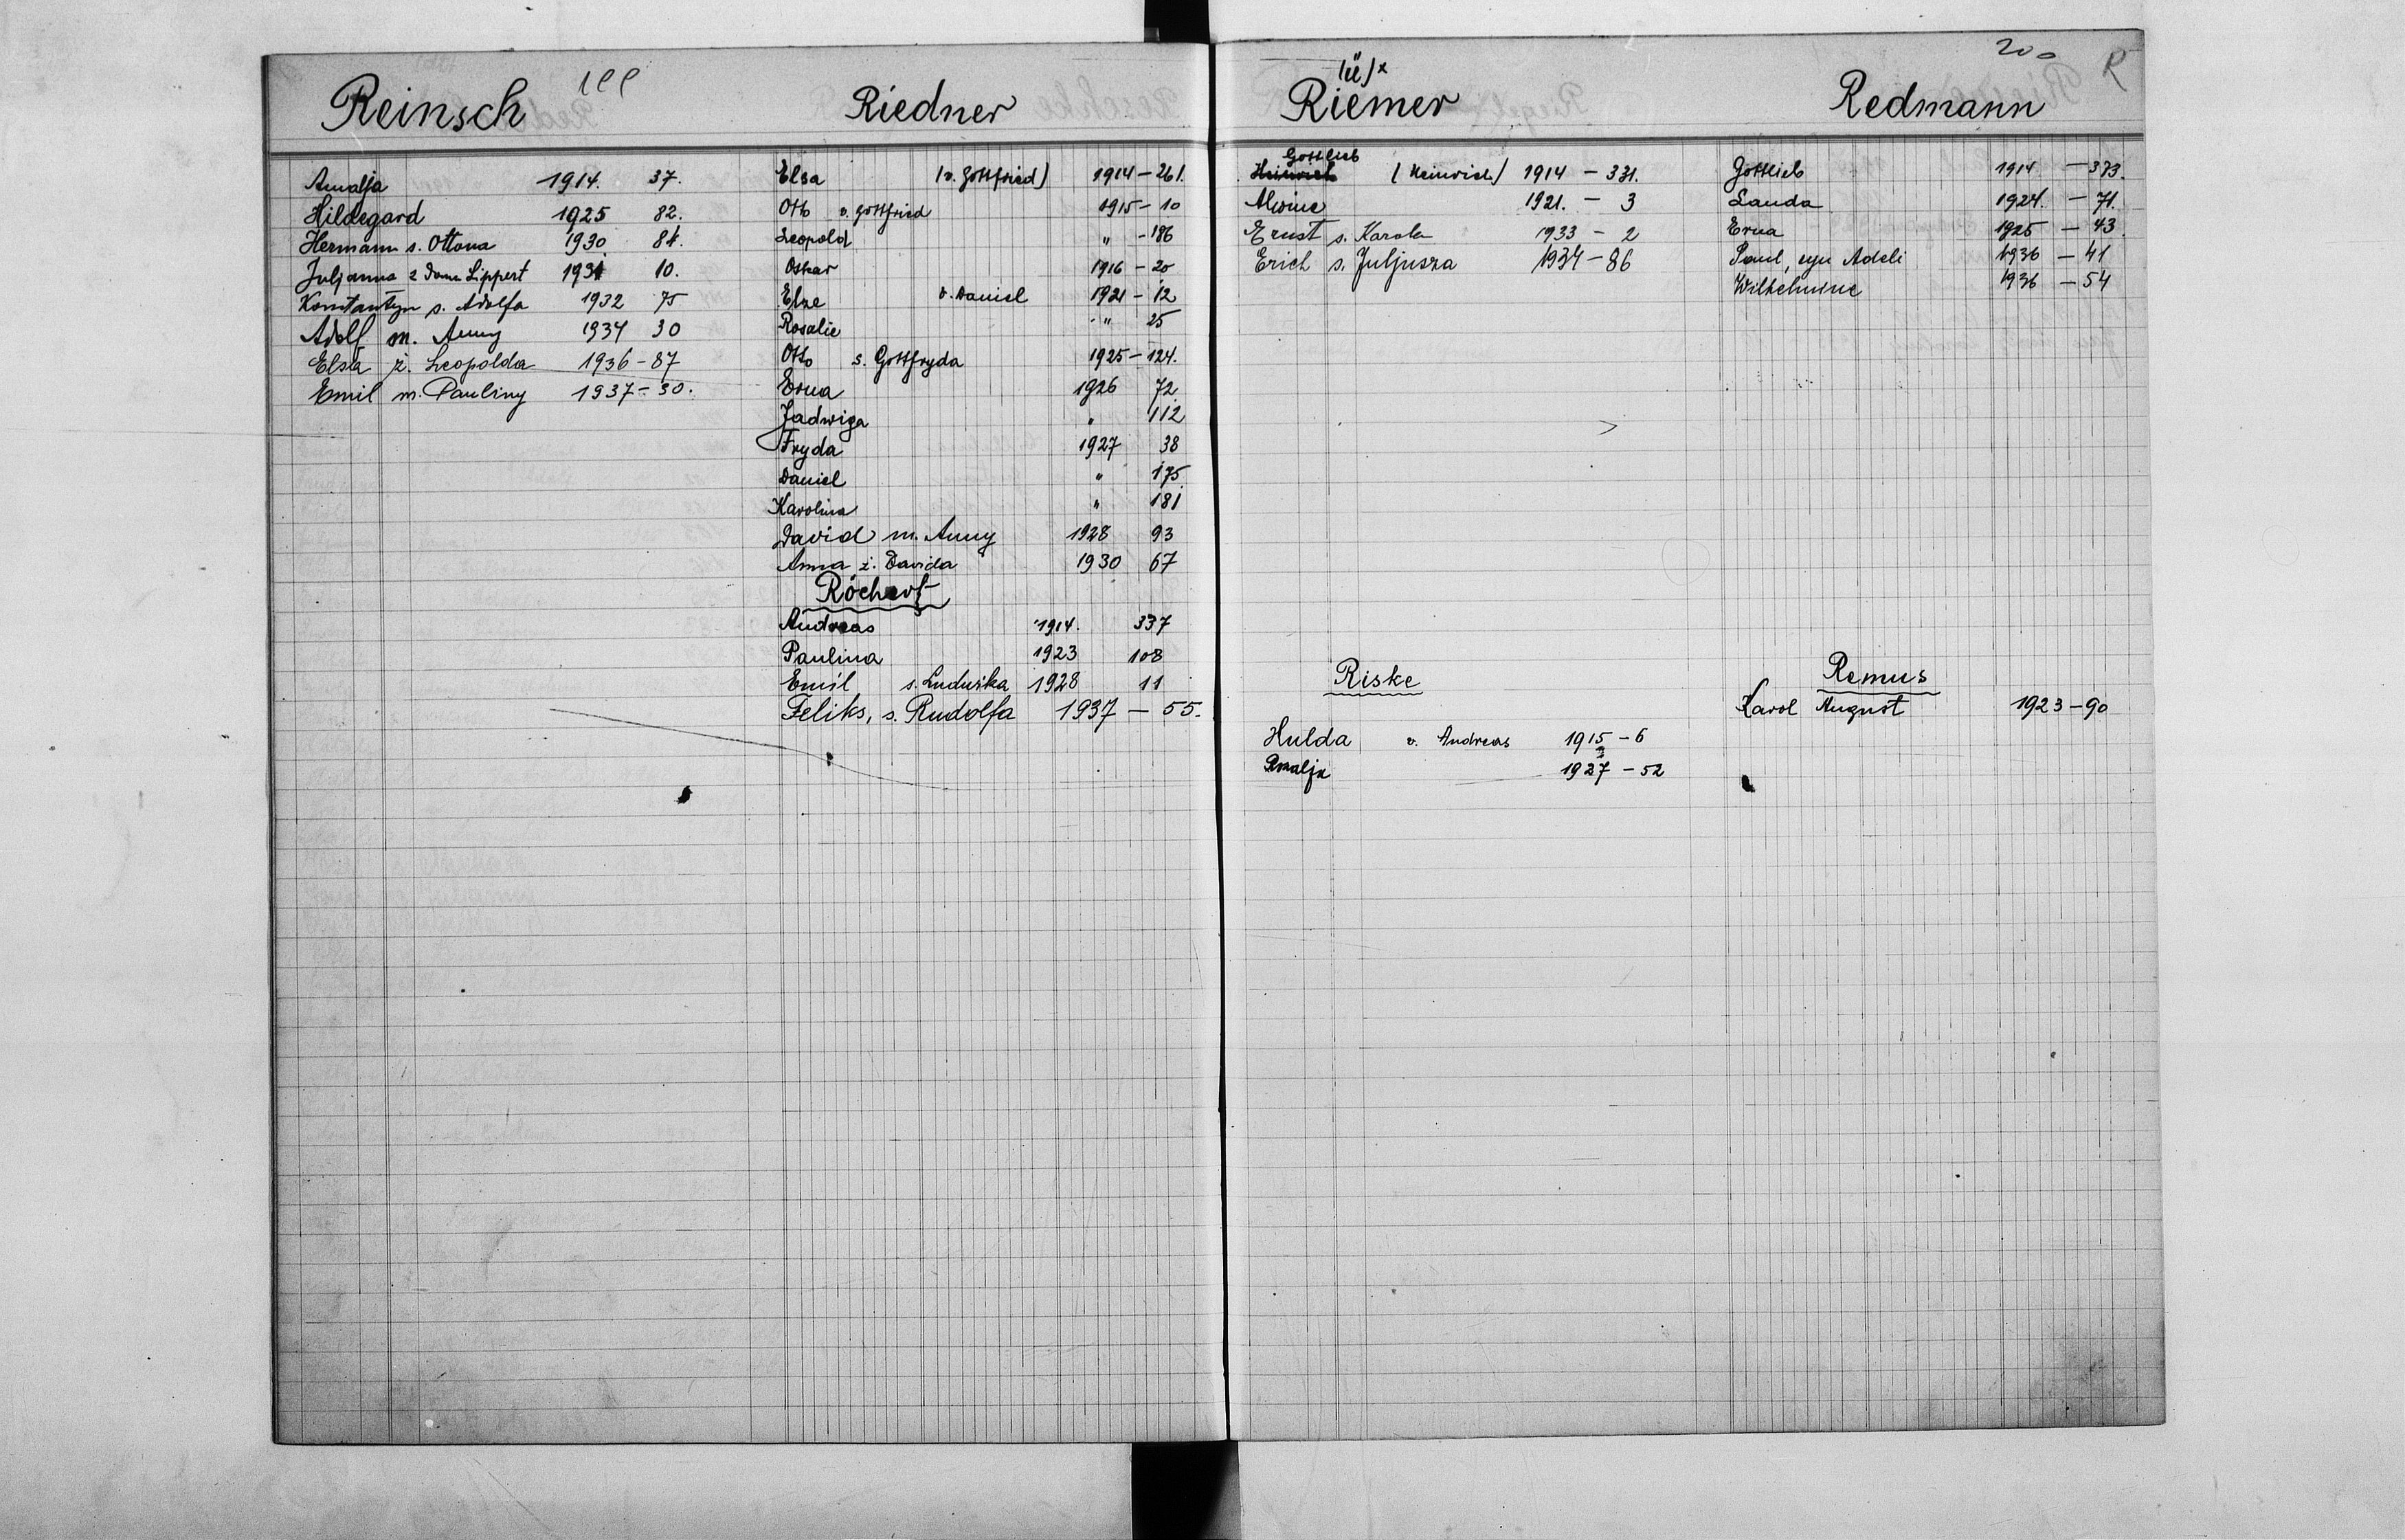 Reinsch
Amalja 1914. 37.
Hildegard 1925 82.
Hermann s. Ottona 1930 84.
Juljanna z domu Lippert 1931 10.
Konstantyn s. Adolfa 1932 75
Adolf m. Anny 1934 30
Elsa ż. Leopolda 1936 - 87
Emil m. Pauliny 1937 - 30.
Riedner
Elsa (v. Gottfried) 1914 - 261.
Otto v. Gottfried 1915 - 10
Leopold " - 186
Oskar 1916 - 20
Else v. Daniel 1921 - 12
Rosalie " 25
Otto s. Gottfryda 1925 - 124.
Erna 1926 72
Jadwiga " 112
Fryda 1927 38
Daniel " 175
Karolina " 181
David m. Anny 1928 93
Anna ż. Davida 1930 67
Röchert
Andreas 1914. 337
Paulina 1923 108
Emil s. Ludwika 1928 11
Feliks, s. Rudolfa 1937 - 55.
200 R
(ü)x
Riemer
Gottlieb
Heinrich (Heinrich) 1914 - 331.
Alwine 1921. - 3
Ernst s. Karola 1933 - 2
Erich s. Juljusza 1934 - 86
Riske
Hulda v. Andreas 1915 - 6
Amalja 1927 - 52
Redmann
Gottlieb 1914 - 373.
Landa 1924. - 71.
Erna 1925 - 43.
Paul, syn Adeli 1936 - 41
Wilhelmine 1936 - 54
Remus
Karol August 1923 - 90